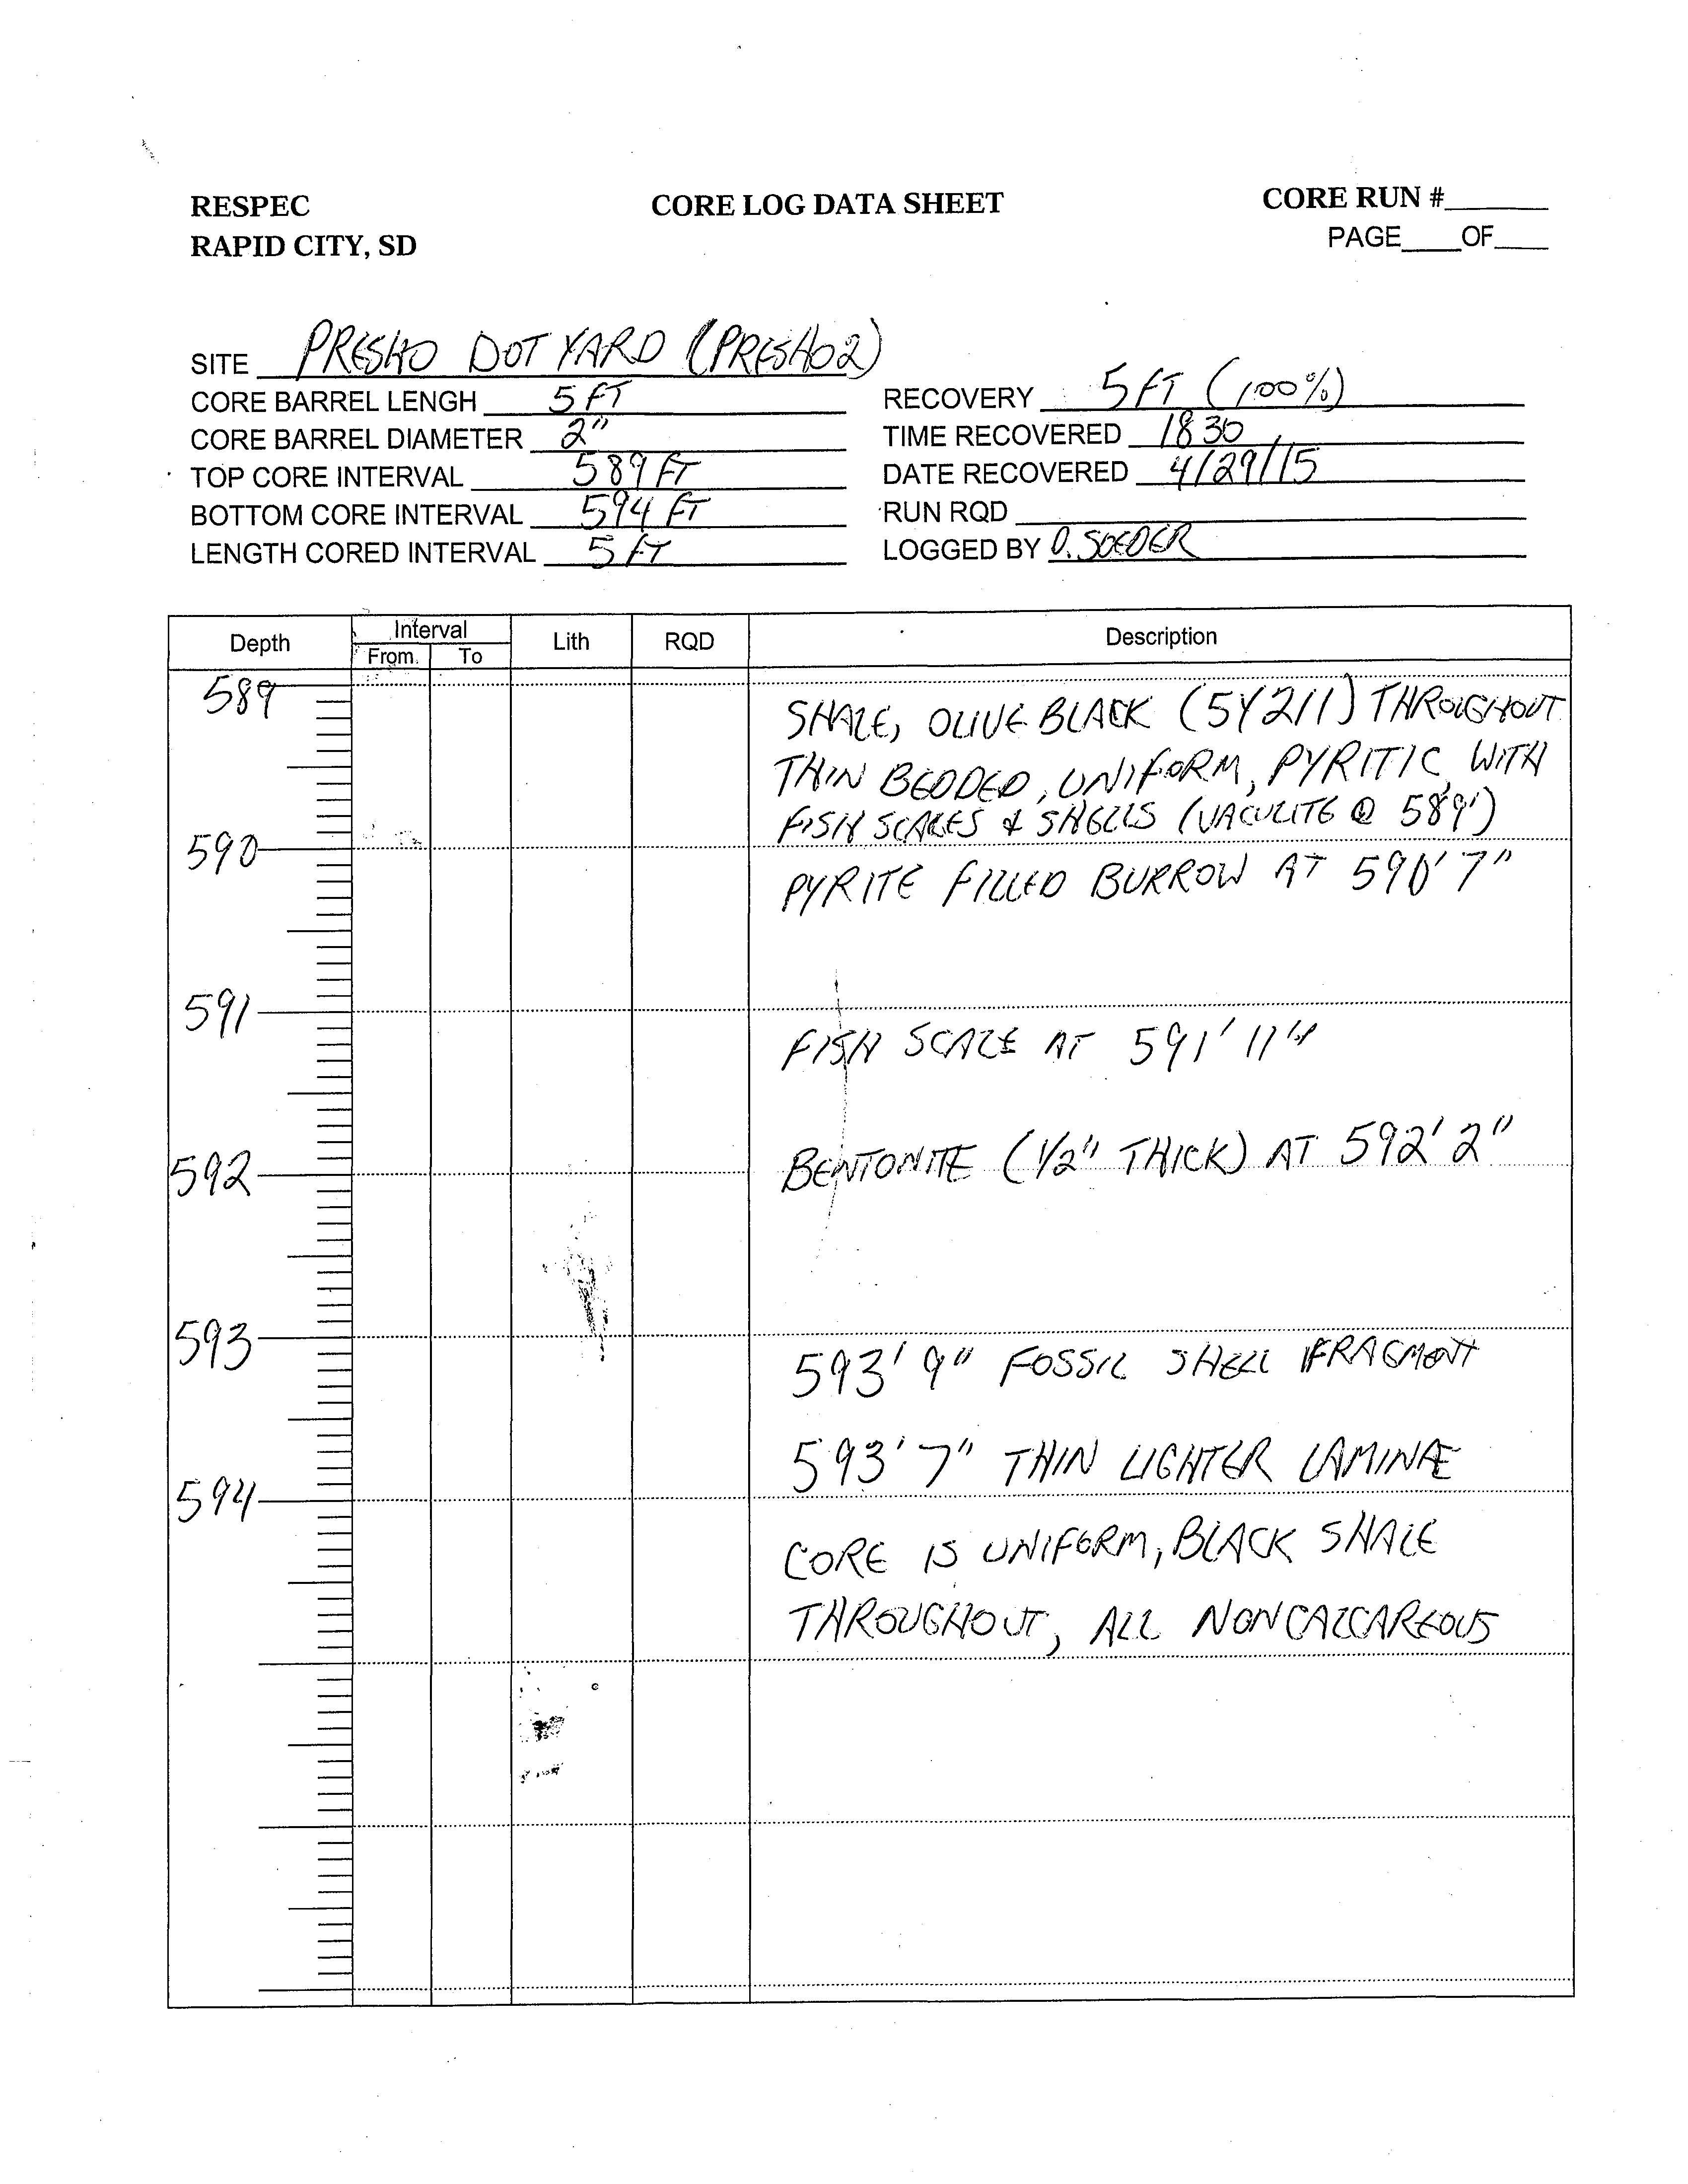 RESPEC
CORE LOG DATA SHEET
CORE RUN #
RAPID CITY, SD
PAGE OF
SITE PRESHO DOT YARD (PRESHO2)
CORE BARREL LENGH 5 FT
RECOVERY 5 FT (100%)
CORE BARREL DIAMETER 2"
TIME RECOVERED 1830
TOP CORE INTERVAL 589 FT
DATE RECOVERED 4/29/15
BOTTOM CORE INTERVAL 594 FT
RUN RQD
LENGTH CORED INTERVAL 5 FT
LOGGED BY D. SOEDER
Depth Interval Lith RQD Description
From To
589
SHALE, OLIVE BLACK (5Y2/1) THROUGHOUT
THIN BEDDED, UNIFORM, PYRITIC, WITH
FISH SCALES & SHELLS (VACULITE @ 589')
590
PYRITE FILLED BURROW AT 590' 7"
591
FISH SCALE AT 591' 11"
592
BENTONITE (1/2" THICK) AT 592' 2"
593
593' 9" FOSSIL SHELL FRAGMENT
593' 7" THIN LIGHTER LAMINAE
594
CORE IS UNIFORM, BLACK SHALE
THROUGHOUT, ALL NONCALCAREOUS